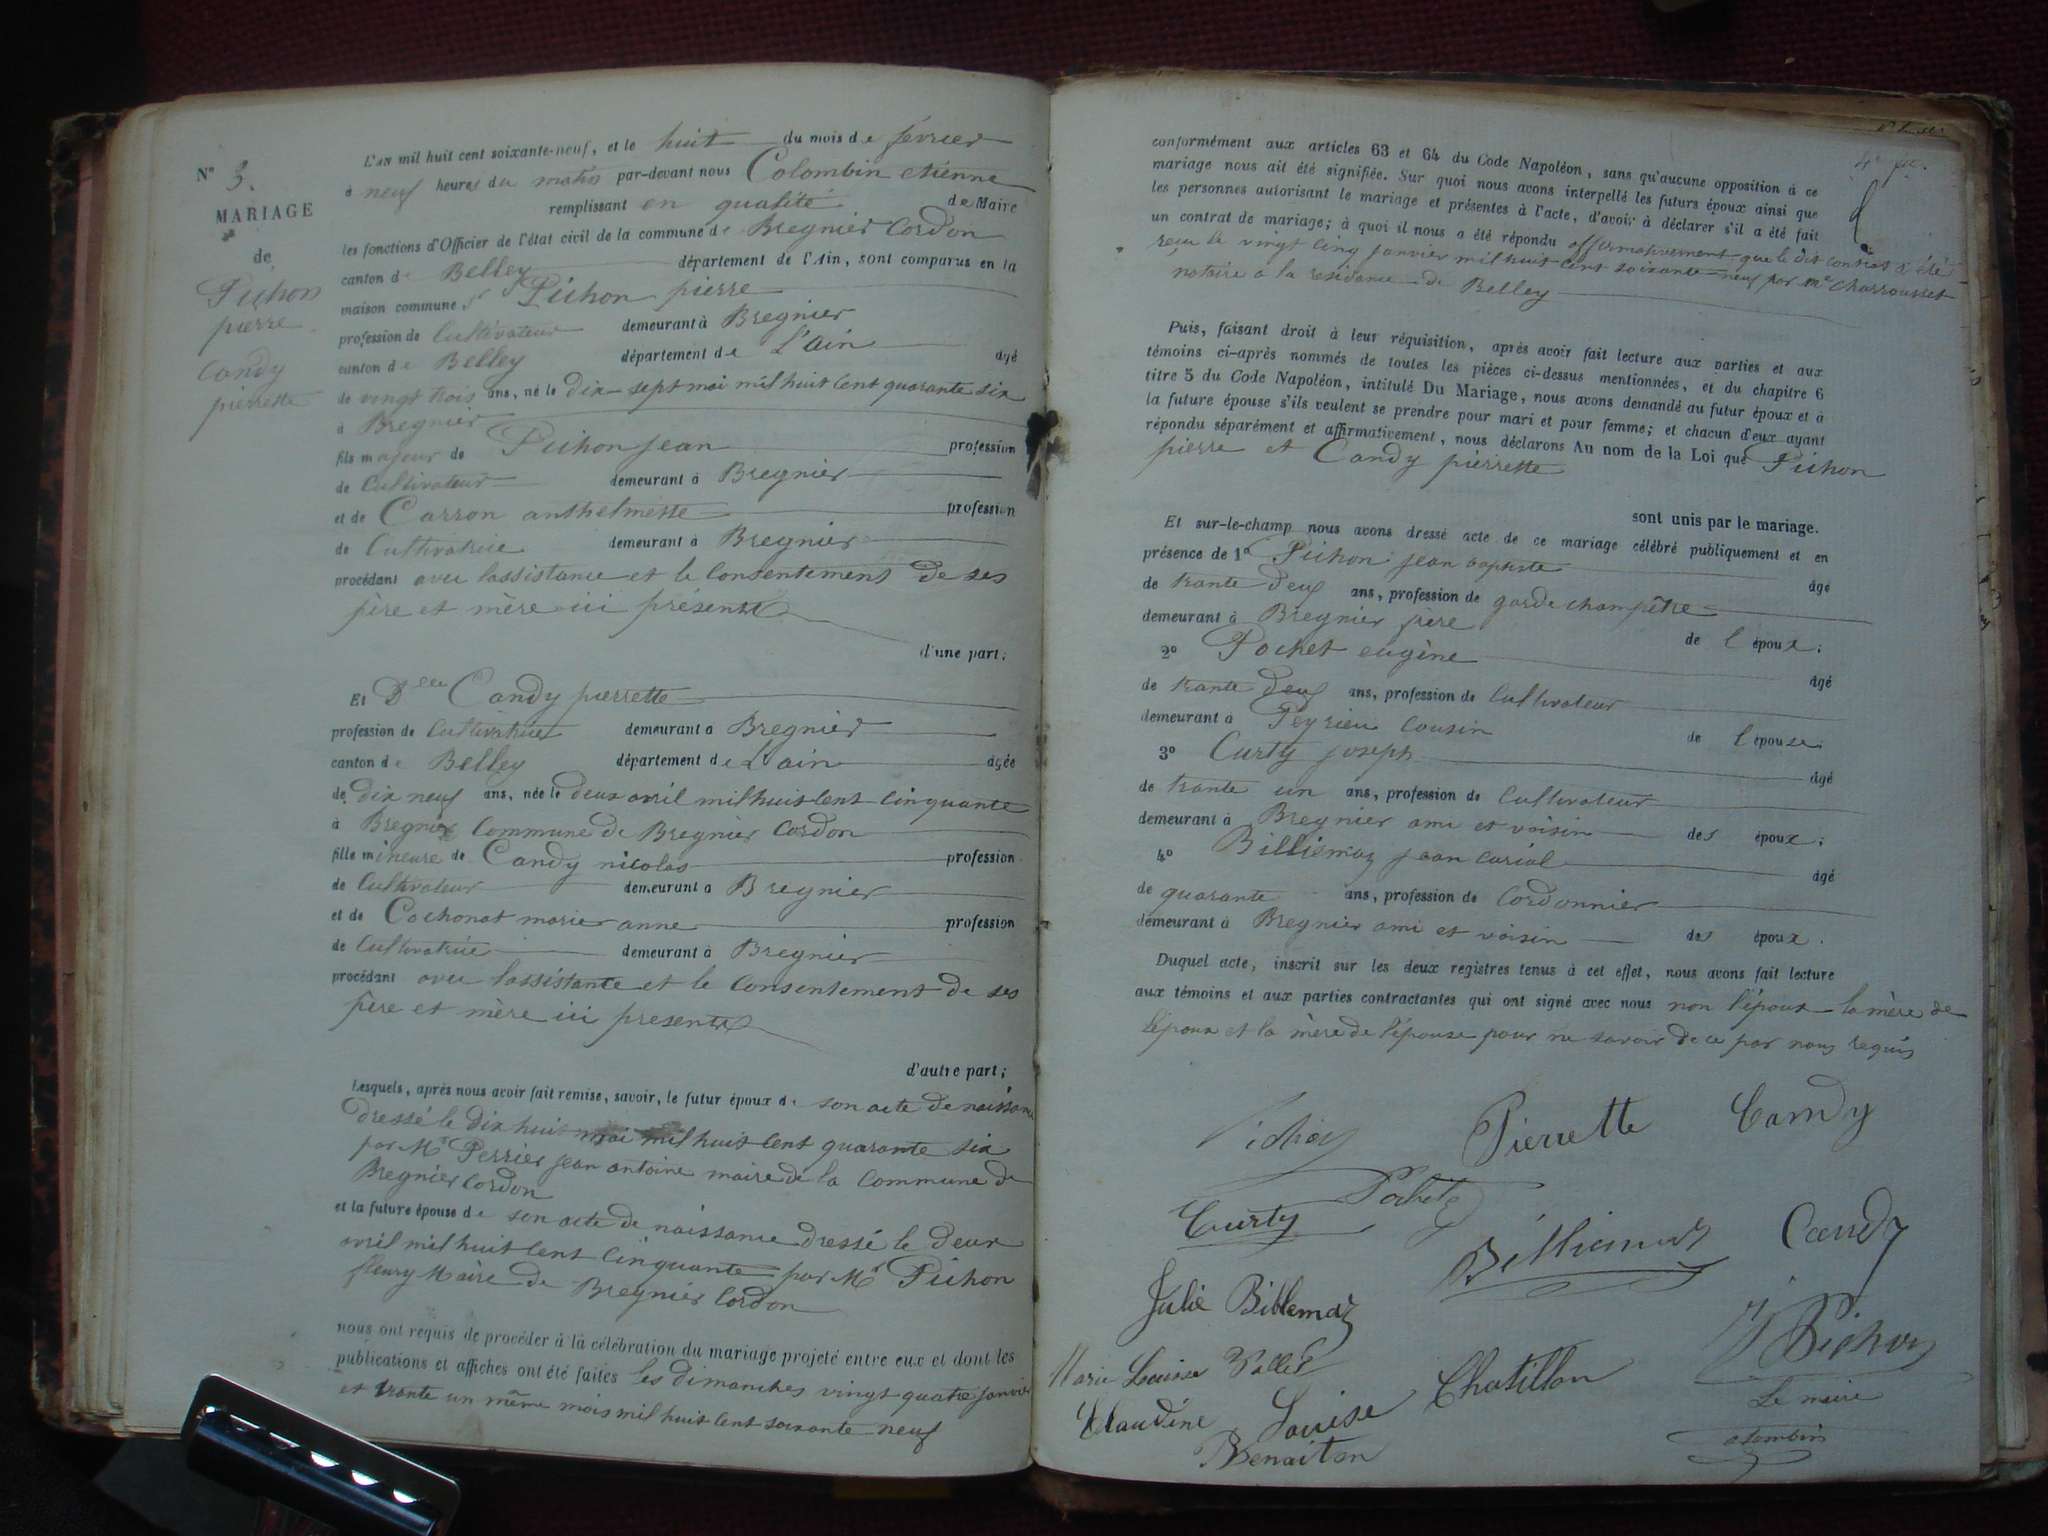 N° 3.
MARIAGE
de
Pichon
pierre
Candy
pierrette
L'AN mil huit cent soixante-neuf, et le huit du mois de fevrier
à neuf heures du matin par-devant nous Colombin etienne
remplissant en qualité de Maire
les fonctions d'Officier de l'état civil de la commune de Bregnier Cordon
canton de Belley département de l'Ain, sont comparus en la
maison commune Pichon pierre
profession de Cultivateur demeurant à Bregnier
canton de Belley département de L'ain agé
de vingt trois ans, né le dix-sept mai mil huit Cent quarante six
à Bregnier
fils majeur de Pichon jean profession
de Cultivateur demeurant à Bregnier
et de Carron anthelmette profession
de Cultivatrice demeurant à Bregnier
procédant avec l'assistance et le Consentement de ses
père et mère ici présents
d'une part;
Et Delle Candy pierrette
profession de Cultivatrice demeurant à Bregnier
canton de Belley département de L'ain agée
de dix neuf ans, née le deux avril mil huit Cent Cinquante
à Bregnier Commune de Bregnier Cordon
fille mineure de Candy nicolas profession
de Cultivateur demeurant à Bregnier
et de Cochonat marie anne profession
de Cultivatrice demeurant à Bregnier
procédant avec l'assistance et le Consentement de ses
père et mère ici presents
d'autre part;
Lesquels, après nous avoir fait remise, savoir, le futur époux de son acte de naissance
dressé le dix huit mai mil huit Cent quarante six
par Mr Perrier jean antoine maire de la Commune de
Bregnier Cordon
et la future épouse de son acte de naissance dressé le deux
avril mil huit Cent Cinquante par Mr Pichon
fleury Maire de Bregnier Cordon
nous ont requis de procéder à la célébration du mariage projeté entre eux et dont les
publications et affiches ont été faites les dimanches vingt quatre janvier
et trante un même mois mil huit Cent soixante neuf
4e
conformément aux articles 63 et 64 du Code Napoléon, sans qu'aucune opposition à ce
mariage nous ait été signifiée. Sur quoi nous avons interpellé les futurs époux ainsi que
les personnes autorisant le mariage et présentes à l'acte, d'avoir à déclarer s'il a été fait
un contrat de mariage; à quoi il nous a été répondu affirmativement que le dit Contrat a été
reçu le vingt Cinq janvier mil huit Cent soixante neuf par Me Charrousset
notaire a la residence de Belley
Puis, faisant droit à leur réquisition, après avoir fait lecture aux parties et aux
témoins ci-après nommés de toutes les pièces ci-dessus mentionnées, et du chapitre 6
titre 5 du Code Napoléon, intitulé Du Mariage, nous avons demandé au futur époux et à
la future épouse s'ils veulent se prendre pour mari et pour femme; et chacun d'eux ayant
répondu séparément et affirmativement, nous déclarons Au nom de la Loi que Pichon
pierre et Candy pierrette
sont unis par le mariage.
Et sur-le-champ nous avons dressé acte de ce mariage célébré publiquement et en
présence de 1° Pichon jean baptiste âgé
de trante deux ans, profession de garde champêtre
demeurant à Bregnier frère de l époux;
2° Pochet eugène âgé
de trante deux ans, profession de Cultivateur
demeurant à Peyrieu Cousin de l épouse;
3° Curty joseph âgé
de trante un ans, profession de Cultivateur
demeurant à Bregnier ami et voisin des époux;
4° Billiemaz jean âgé
de quarante ans, profession de Cordonnier
demeurant à Bregnier ami et voisin des époux.
Duquel acte, inscrit sur les deux registres tenus à cet effet, nous avons fait lecture
aux témoins et aux parties contractantes qui ont signé avec nous non l'époux la mère de
l'époux et la mère de l'épouse pour ne savoir de ce par nous requis
Pichon Pierrette Candy
Curty Pochet
Billiemaz Candy
Julie Billemaz
J Pichon
Marie Louise
Chatillon
Claudine Louise
Benaiton
Le maire
Colombin